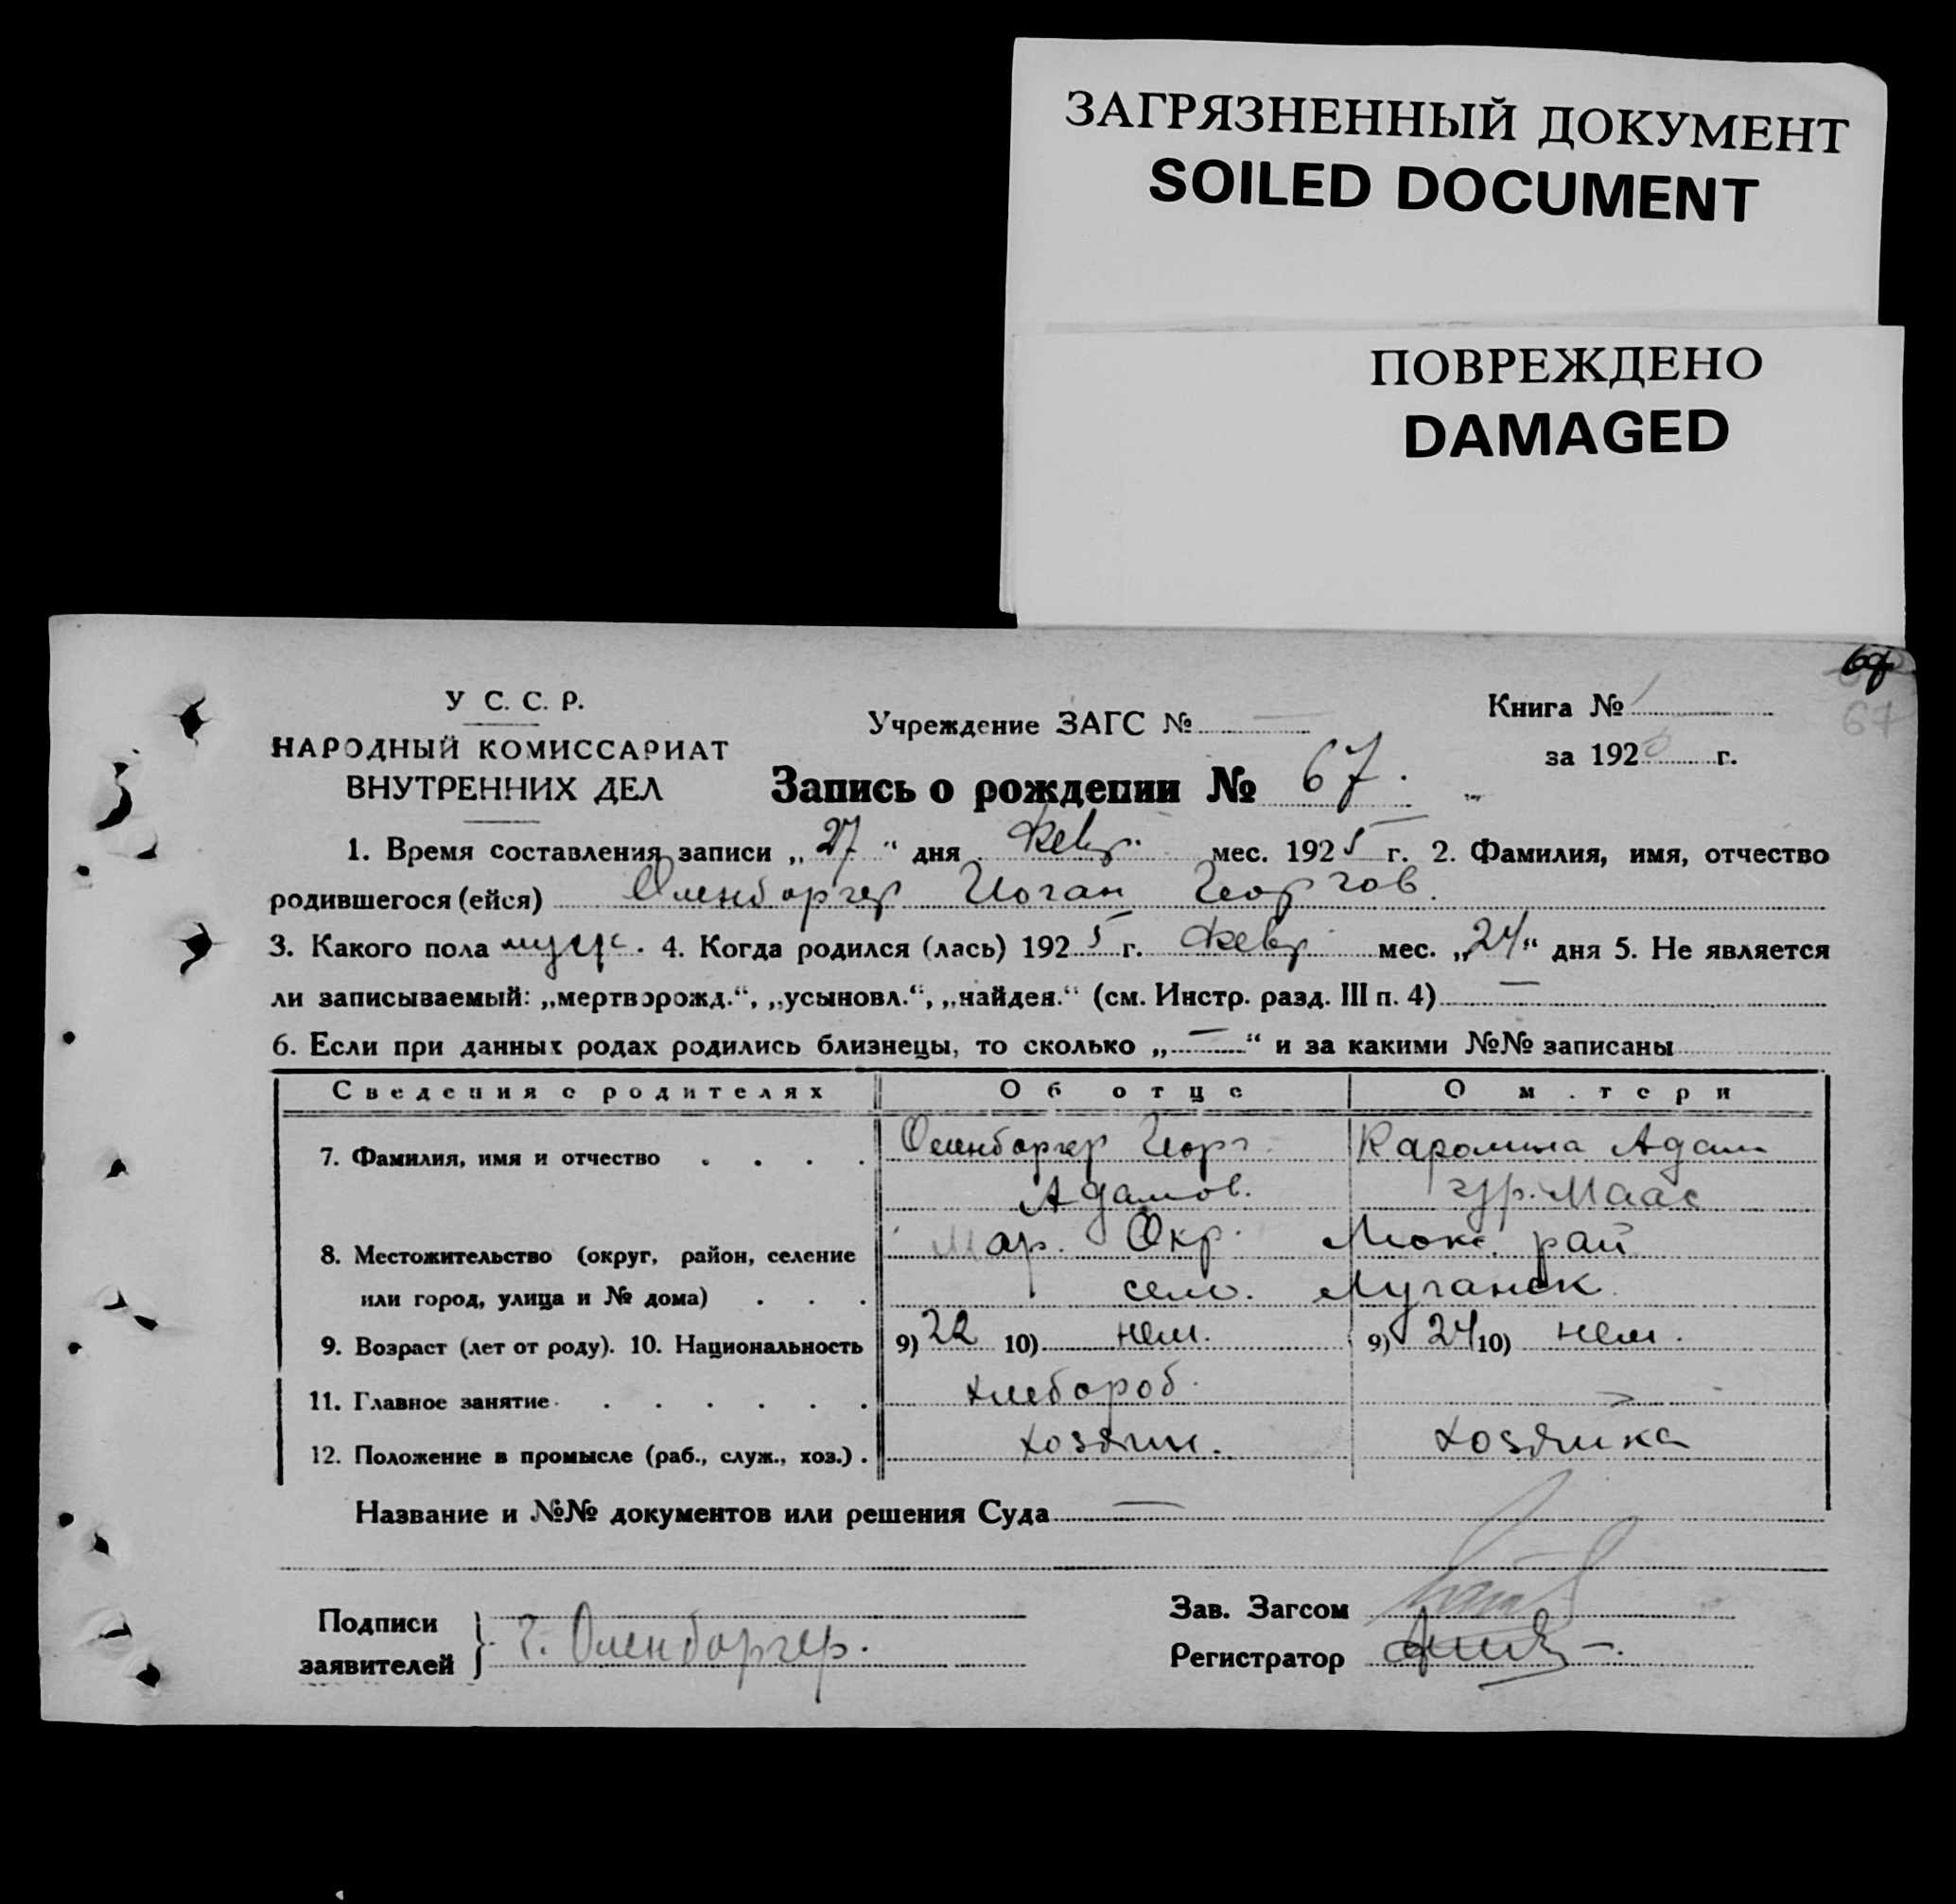 ЗАГРЯЗНЕННЫЙ ДОКУМЕНТ
SOILED DOCUMENT
ПОВРЕЖДЕНО
DAMAGED
67
У С. С. Р.
НАРОДНЫЙ КОМИССАРИАТ
ВНУТРЕННИХ ДЕЛ
Учреждение ЗАГС № —
Книга №
67
за 192 г.
Запись о рождении № 67.
1. Время составления записи „27“ дня Февр. мес. 1925 г. 2. Фамилия, имя, отчество
родившегося (ейся) Оленборгер Иоган Георгов.
3. Какого пола муж. 4. Когда родился (лась) 1925 г. Февр мес. „24“ дня 5. Не является
ли записываемый: „мертворожд.“, „усыновл.“, „найден.“ (см. Инстр. разд. III п. 4) —
6. Если при данных родах родились близнецы, то сколько „—“ и за какими №№ записаны
Сведения о родителях Об отце О м.тери
7. Фамилия, имя и отчество . . . . Оленборгер Георг Каролина Адам
Адамов. ур. Маас
8. Местожительство (округ, район, селение Мар. Окр. Люкс. рай
или город, улица и № дома) . . . село. Луганск
9. Возраст (лет от роду). 10. Национальность 9) 22 10) нем. 9) 24 10) нем.
11. Главное занятие . . . . . . хлебороб. —
12. Положение в промысле (раб., служ., хоз.) . хозяин. хозяйка
Название и №№ документов или решения Суда —
Подписи
заявителей } Г. Оленборгер.
Зав. Загсом
Регистратор